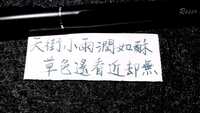 天街小雨潤如酥
草色遥看近却無